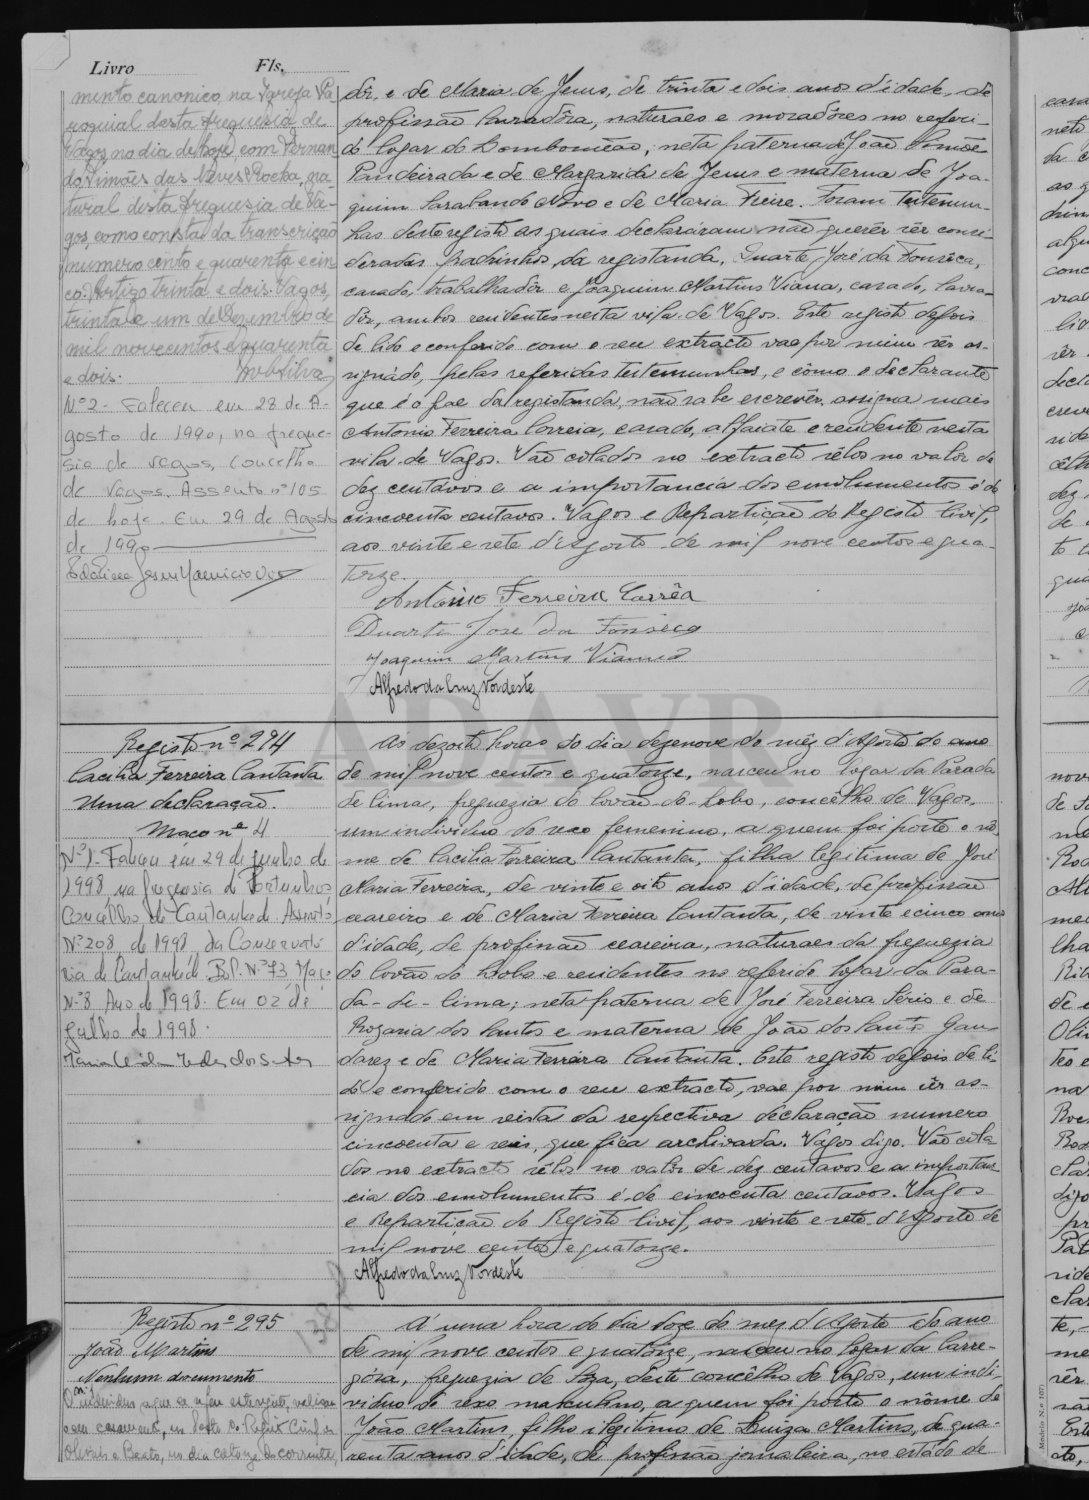 Livro Fls.
mento canonico, na Igreja Pa-
roquial desta freguesia de
Vagos, no dia de hoje com Fernan
do Simões das Neves Rocha, na-
tural desta freguesia de Va-
gos, como consta da transcrição
numero cento e quarenta e cin
co. Artigo trinta e dois. Vagos,
trinta e um de Dezembro de
mil novecentos e quarenta
e dois.
Nº 2 - Faleceu em 28 de A-
gosto de 1990, na fregue-
sia de Vagos, Concelho
de Vagos. Assento nº 105
de hoje. Em 29 de Agosto
de 1990
dôr, e de Maria de Jesus, de trinta e dois anos d'idade, de
profissão lavradôra, naturaes e moradôres no referi-
do logar do Lombomeão, neta paterna de João Tomé
Pandeirada e de Margarida de Jesus e materna de Joa-
quim Sarabando Novo e de Maria Freire. Foram testemu-
nhas deste registo as quais declararam não querer sêr consi-
deradas padrinhos, da registanda, Duarte José da Fonseca,
casado, trabalhadôr e Joaquim Martins Viana, casado, lavra-
dôr, ambos residentes nesta vila de Vagos. Este registo depois
de lido e conferido com o seu extracto vae por mim sêr as-
signado, pelas referidas testemunhas, e cômo o declarante
que é o pae da registanda, não sabe escrevêr, assigna mais
Antonio Ferreira Correia, casado, alfaiate e residente nesta
vila de Vagos. Vão colados no extracto sêlos no valor de
dez centávos e a importancia dos emolumentos é de
cincoenta centavos. Vagos e Repartição do Registo Civil,
aos vinte e sete d'Agosto de mil nove centos e qua-
torze.
António Ferreira Corrêa
Duarte José da Fonseca
Joaquim Martins Viana
Alfredo da Cruz Nordeste
ADAVR
Registo nº 294
Cacilia Ferreira Cantanta
Uma declaração.
Maço nº 4
Nº 1 - Faleceu em 29 de Junho de
1998 na freguesia de Portunhos
Concelho de Cantanhede Assento
Nº 208 de 1998 da Conservató
ria de Cantanhede Bol. Nº 73 Maço
Nº 8 Ano de 1998. Em 02 de
Julho de 1998.
Ás dezoito horas do dia dezenove do mês d'Agosto do ano
de mil nove centos e quatorze, nasceu no logar da Parada
de lima, freguezia de Covão do Lobo, concêlho de Vagos,
um individuo do sexo femenino, a quem foi posto o nô-
me de Cacilia Ferreira Cantanta, filha legitima de José
Maria Ferreira, de vinte e oito anos d'idade, de profissão
ceareiro e de Maria Ferreira Cantanta, de vinte e cinco anos
d'idade, de profissão ceareira, naturaes da freguezia
do Covão do Lobo e residentes no referido logar da Para-
da-de-lima; neta paterna de José Ferreira Serio e de
Rozaria dos Santos e materna de João dos Santos Gan
darez e de Maria Ferreira Cantanta. Este registo depois de li-
do e conferido com o seu extracto, vae por mim sêr as-
signado em vista da respectiva declaração numero
cincoenta e seis, que fica archivada. Vagos digo. Vão cola
dos no extracto sêlos no valôr de dez centavos e a importan
cia dos emolumentos é de cincoenta centavos. Vagos
e Repartição do Registo Civil, aos vinte e sete d'Agosto de
mil nove centos e quatorze.
Alfredo da Cruz Nordeste
Registo nº 295
João Martins
Nenhum documento
O individuo a que se refere este registo, realisou
o seu casamento, no Posto do Registo Civil de
Olivais e Beato, no dia catorze do corrente
Á uma hora do dia doze do mez d'Agosto do ano
de mil nove centos e quatorze, nasceu no logar da Carre-
góza, freguezia de Soza, deste concêlho de Vagos, um indi-
viduo do sexo masculino, a quem foi posto o nôme de
João Martins, filho ilegitimo de Luiza Martins, de qua-
renta anos d'idade, de profissão jornaleira, no estádo de
Modelo N.º 1071